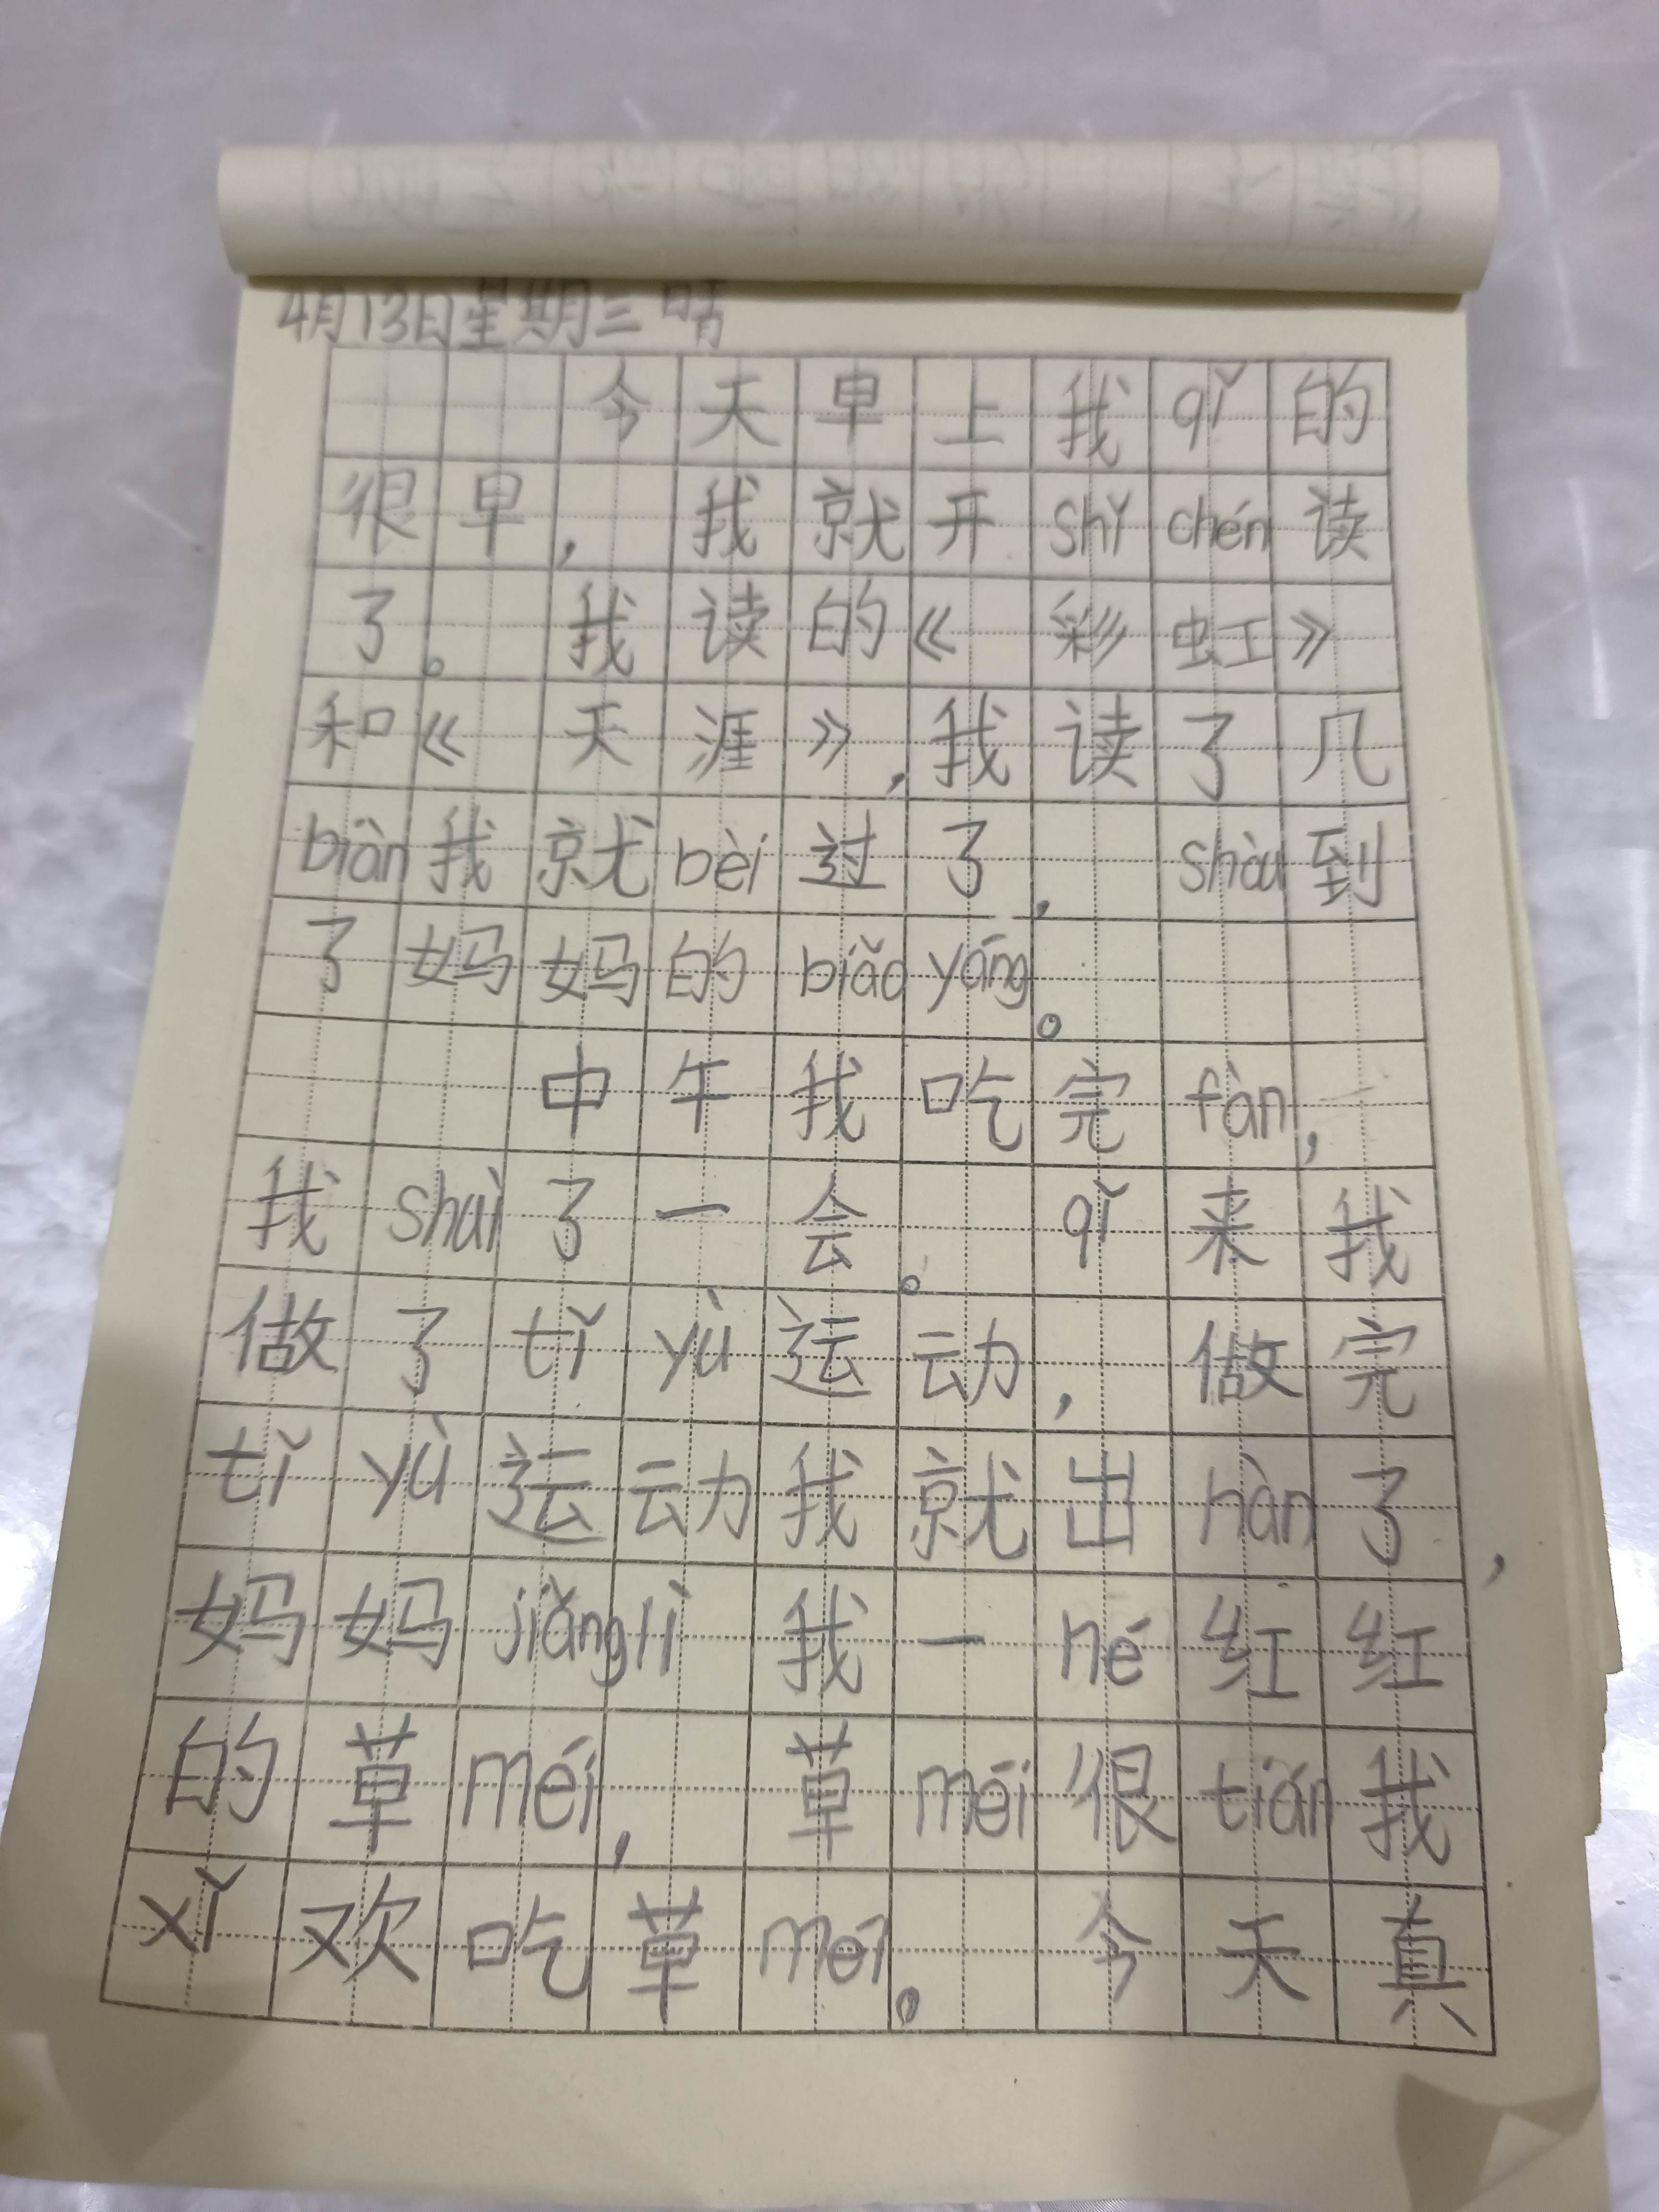 4月13日星期三 晴
今天早上我qǐ的
很早，我就开shǐ chén读
了。我读的《彩虹》
和《天涯》，我读了几
biàn我就bèi过了，shàu到
了妈妈的biǎo yáng。
中午我吃完fàn，
我shuì了一会。qǐ来我
做了tǐ yù运动，做完
tǐ yù运动我就出hàn了，
妈妈jiǎnglì我一hé红红
的草méi，草méi很tián我
xǐ欢吃草méi。今天真